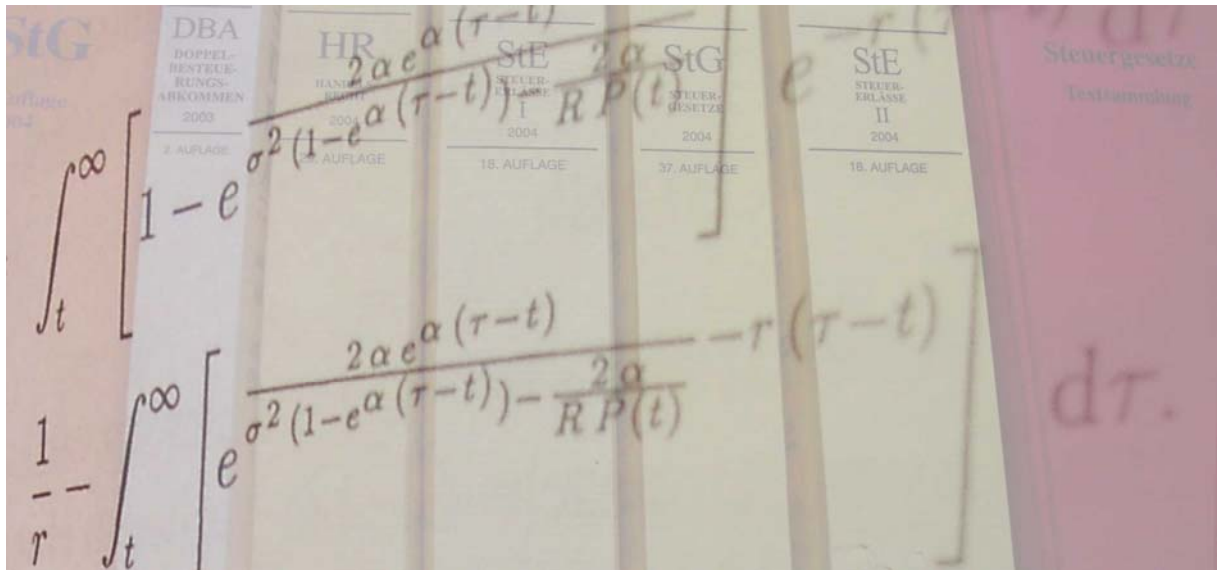 StG
Auflage
DBA
DOPPEL-
BESTEUE-
RUNGS-
ABKOMMEN
2003
2. AUFLAGE
HR
2004
AUFLAGE
StE
STEUER-
ERLÄSSE
I
2004
18. AUFLAGE
StG
STEUER-
GESETZE
2004
37. AUFLAGE
StE
STEUER-
ERLÄSSE
II
2004
18. AUFLAGE
Steuergesetze
Textsammlung
∫_t^∞ [1 − e^{\frac{2αe^{α(τ−t)}}{σ²(1−e^{α(τ−t)})−\frac{2α}{R P(t)}}}] e^{−r(τ−t)} dτ
\frac{1}{r} − ∫_t^∞ [e^{\frac{2αe^{α(τ−t)}}{σ²(1−e^{α(τ−t)})−\frac{2α}{R P(t)}}−r(τ−t)}] dτ.